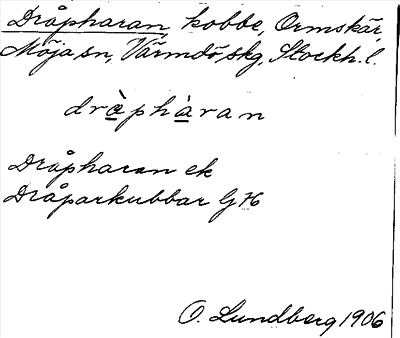 Dråpharan, kobbe, Ormskär,
Möja sn, Värmdö skg, Stockh. l.
dràphàran
Dråpharan ek
Dråparkubbar GK
O. Lundberg 1906